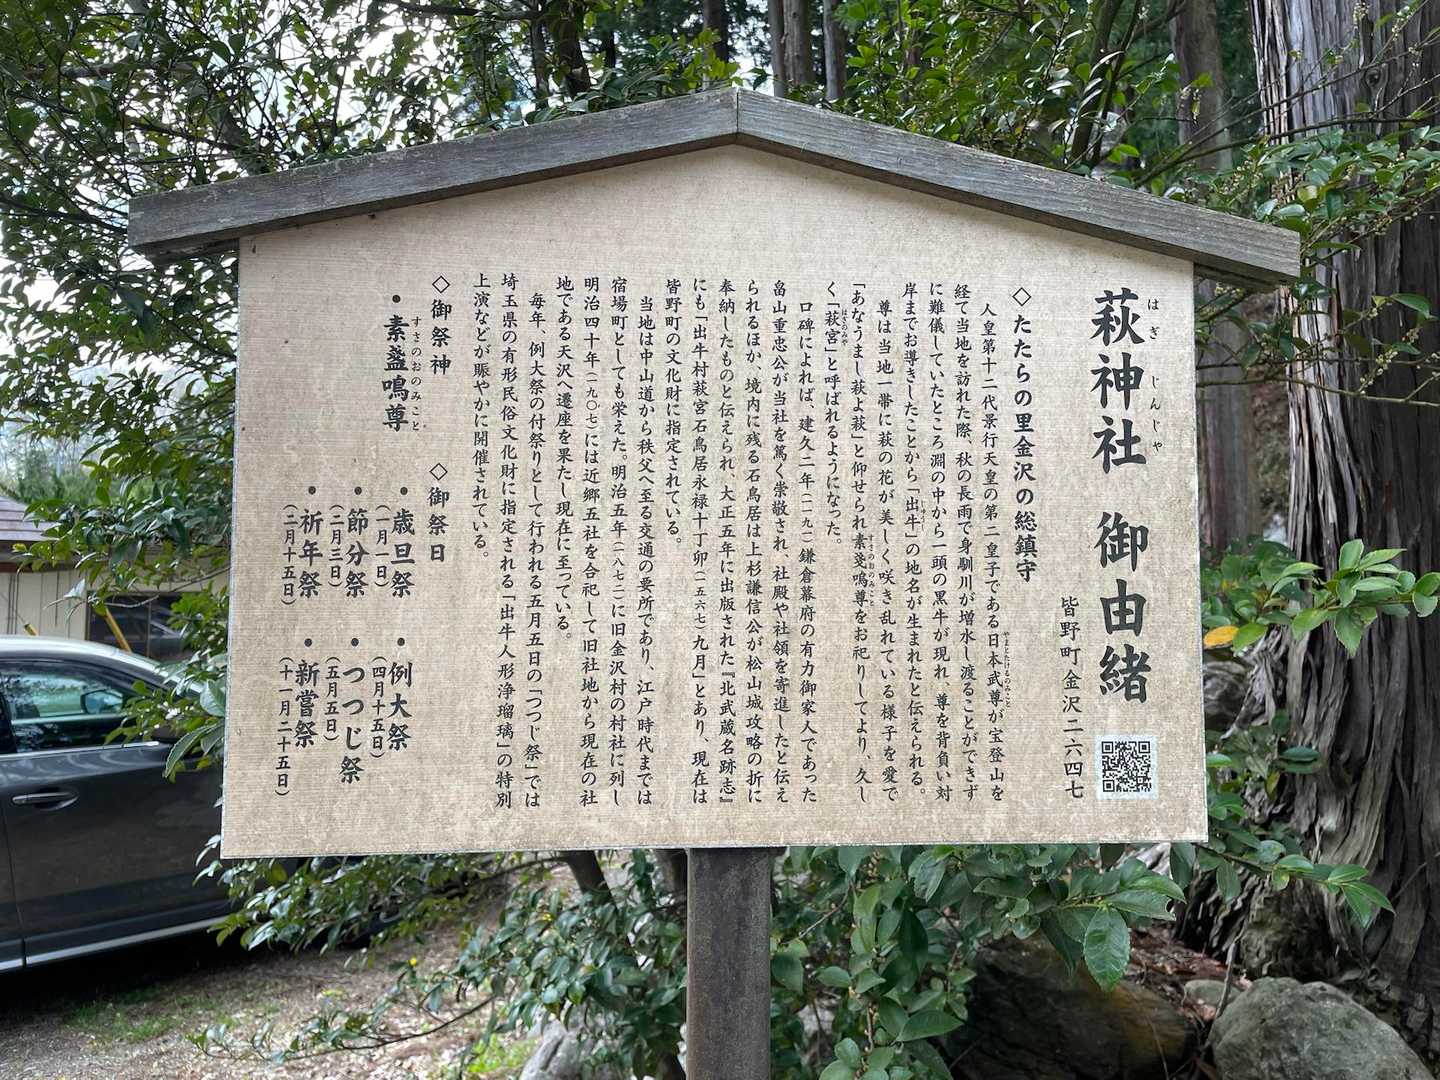 萩神社 御由緒
はぎ じんじゃ
皆野町金沢二六四七
◇たたらの里金沢の総鎮守
人皇第十二代景行天皇の第二皇子である日本武尊が宝登山を
やまとたけるのみこと
経て当地を訪れた際、秋の長雨で身馴川が増水し渡ることができず
に難儀していたところ淵の中から一頭の黒牛が現れ、尊を背負い対
岸までお導きしたことから「出牛」の地名が生まれたと伝えられる。
尊は当地一帯に萩の花が美しく咲き乱れている様子を愛で
「あなうまし萩よ萩」と仰せられ素戔嗚尊をお祀りしてより、久し
すさのおのみこと
く「萩宮」と呼ばれるようになった。
はぎのみや
口碑によれば、建久二年(一一九一)鎌倉幕府の有力御家人であった
畠山重忠公が当社を篤く崇敬され、社殿や社領を寄進したと伝え
られるほか、境内に残る石鳥居は上杉謙信公が松山城攻略の折に
奉納したものと伝えられ、大正五年に出版された『北武蔵名跡志』
にも「出牛村萩宮石鳥居永禄十丁卯(一五六七)九月」とあり、現在は
皆野町の文化財に指定されている。
当地は中山道から秩父へ至る交通の要所であり、江戸時代までは
宿場町としても栄えた。明治五年(一八七二)に旧金沢村の村社に列し
明治四十年(一九〇七)には近郷五社を合祀して旧社地から現在の社
地である天沢へ遷座を果たし現在に至っている。
毎年、例大祭の付祭りとして行われる五月五日の「つつじ祭」では
埼玉県の有形民俗文化財に指定される「出牛人形浄瑠璃」の特別
上演などが賑やかに開催されている。
◇御祭神
・素盞嗚尊
すさのおのみこと
◇御祭日
・歳旦祭
(一月一日)
・節分祭
(二月三日)
・祈年祭
(二月十五日)
・例大祭
(四月十五日)
・つつじ祭
(五月五日)
・新嘗祭
(十一月二十五日)